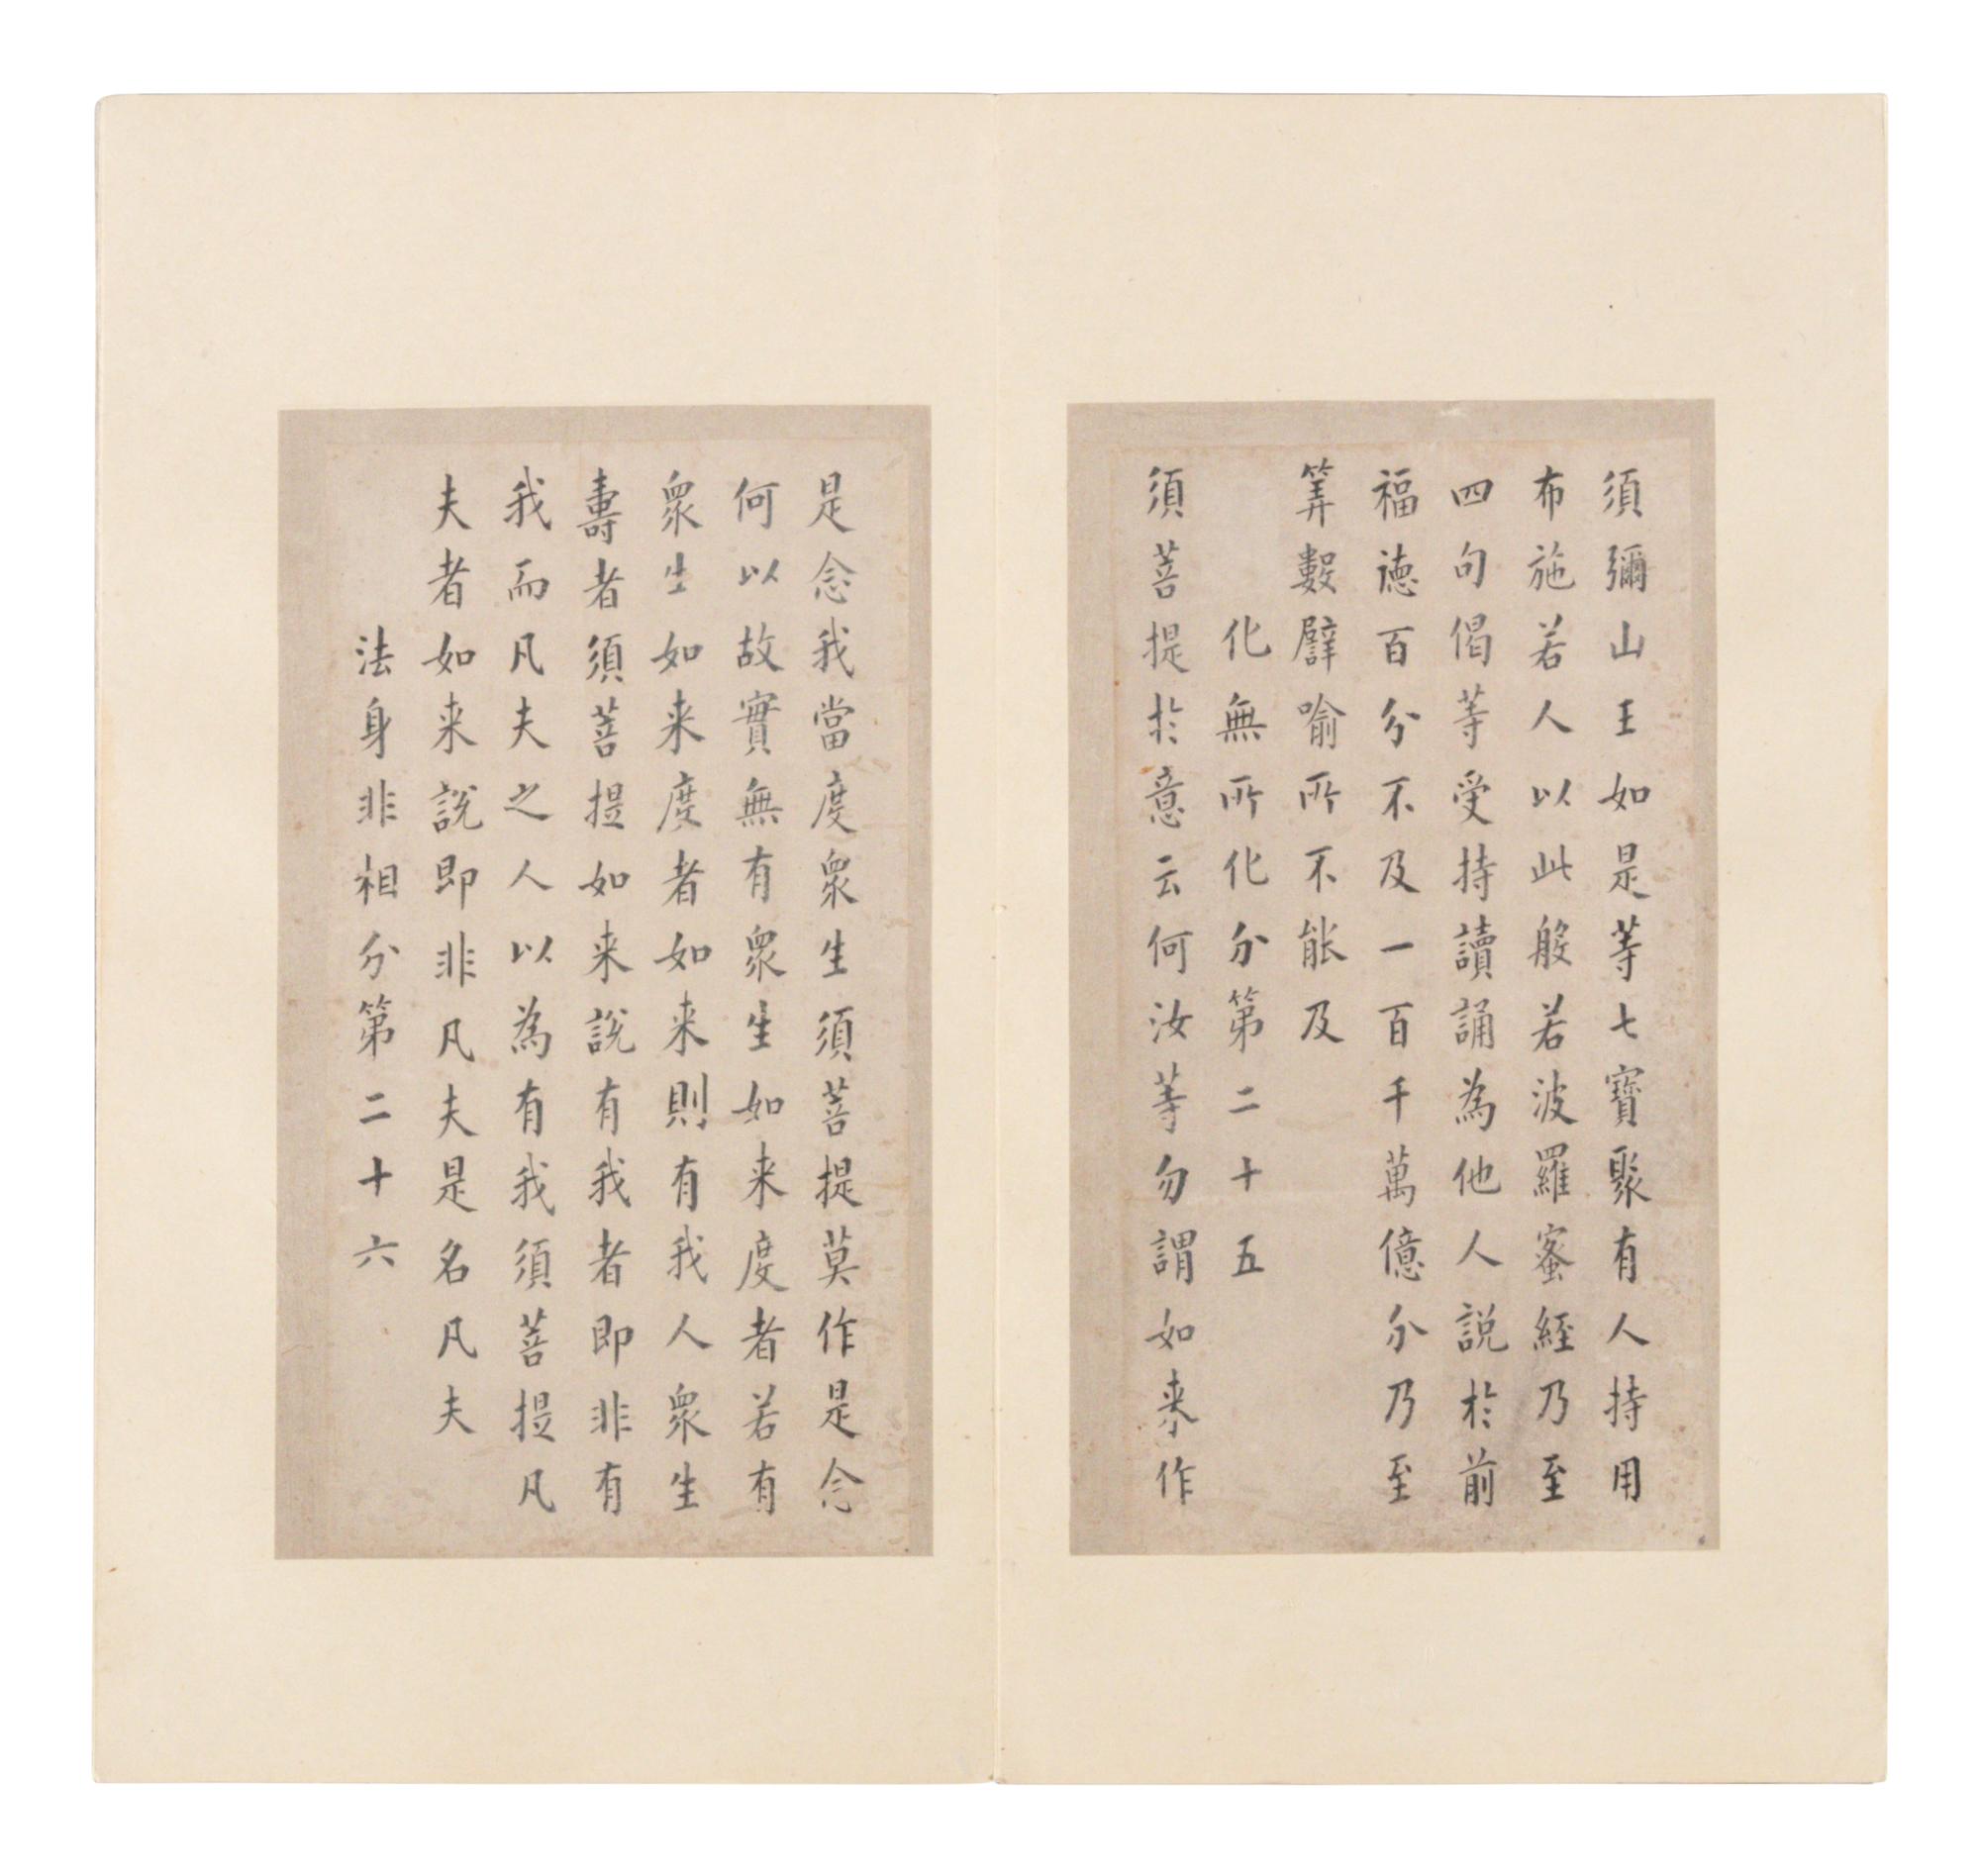 須彌山王如是等七寶聚有人持用
布施若人以此般若波羅蜜經乃至
四句偈等受持讀誦為他人説於前
福德百分不及一百千萬億分乃至
筭數譬喻所不能及
化無所化分第二十五
須菩提於意云何汝等勿謂如来作
是念我當度衆生須菩提莫作是念
何以故實無有衆生如来度者若有
衆生如来度者如来則有我人衆生
壽者須菩提如来説有我者即非有
我而凡夫之人以為有我須菩提凡
夫者如来説即非凡夫是名凡夫
法身非相分第二十六